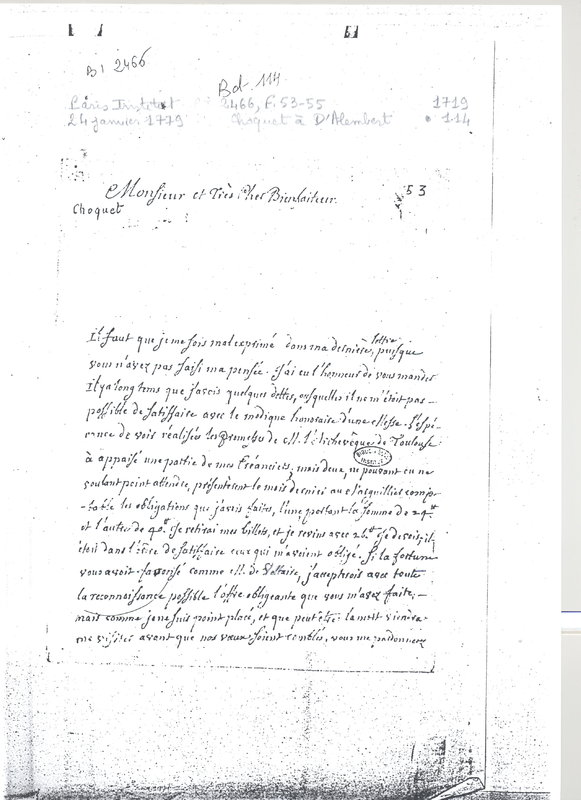 BI 2466
Bd. 114
Paris Institut 2466, F: 53-55 1719
24 janvier 1779 Choquet à D'Alembert 114
53
Monsieur et Très Cher Bienfaiteur.
Choquet
Il faut que je me sois mal exprimé dans ma dernière lettre, puisque
vous n'avez pas saisi ma pensée. J'ai eu l'honneur de vous mander
Il y a long tems que j'avois quelques dettes, auxquelles il ne m'étoit pas
possible de satisfaire avec le modique honoraire d'une Messe. L'espé-
rance de voir réalisés les promesses de M. l'Archevêque de Toulouse
à appaisé une partie de mes Créanciers, mais deux, ne pouvant ou ne
voulant point attendre, présentèrent le mois dernier au comp-
-table les obligations que j'avois faites, l'une portant la somme de 24#
et l'autre de 40# Je retirai mes billets, et je revins avec 26#
étoit dans l'ordre de satisfaire ceux qui m'avoient obligé. Si la fortune
vous avoit favorisé comme M. de Voltaire, j'accepterois avec toute
la reconnoissance possible l'offre obligeante que vous m'avez faite;
mais comme je ne suis point placé, et que peut être la mort viendra
me visiter avant que nos vœux soient comblés, vous me pardonnerez